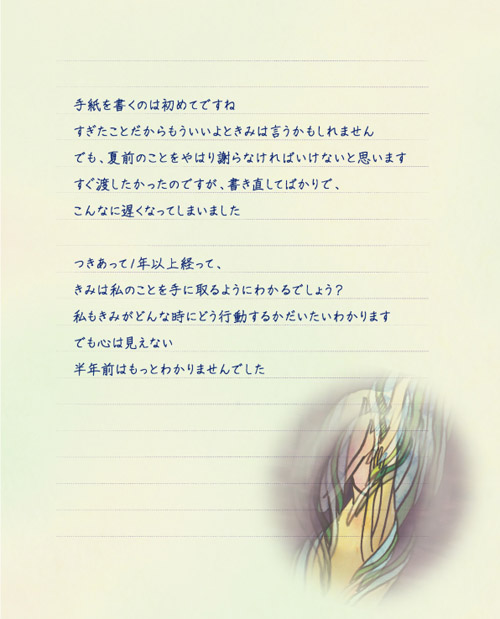 手紙を書くのは初めてですね
すぎたことだからもういいよときみは言うかもしれません
でも、夏前のことをやはり謝らなければいけないと思います
すぐ渡したかったのですが、書き直してばかりで、
こんなに遅くなってしまいました
つきあって1年以上経って、
きみは私のことを手に取るようにわかるでしょう?
私もきみがどんな時にどう行動するかだいたいわかります
でも心は見えない
半年前はもっとわかりませんでした